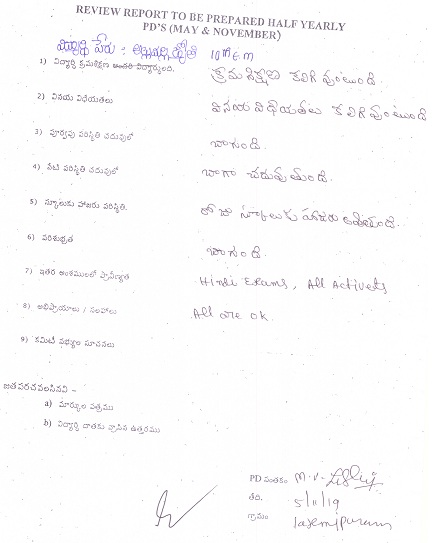 REVIEW REPORT TO BE PREPARED HALF YEARLY
PD'S (MAY & NOVEMBER)
విద్యార్థి పేరు : జ్యోతి 10th E.M
1) విద్యార్థి క్రమశిక్షణ క్రమశిక్షణ కలిగి వుంటుంది
2) వినయ విధేయతలు వినయ విధేయతలు కలిగి వుంటుంది
3) పూర్వపు పరిస్థితి చదువులో బాగుంది.
4) నేటి పరిస్థితి చదువులో బాగా చదువుతుంది.
5) స్కూలుకు హాజరు పరిస్థితి. రోజు స్కూలుకు హాజరు అవుతుంది.
6) పరిశుభ్రత బాగుంది.
7) ఇతర అంశములలో ప్రావీణ్యత Hindi Exams, All Activets
8) అభిప్రాయాలు / సలహాలు All are ok.
9) కమిటీ సభ్యుల సూచనలు
జతపరచవలసినవి –
a) మార్కుల పత్రము
b) విద్యార్థి దాతకు వ్రాసిన ఉత్తరము
PD సంతకం M. V.
తేది. 5/11/19
గ్రామం Laxmipuram